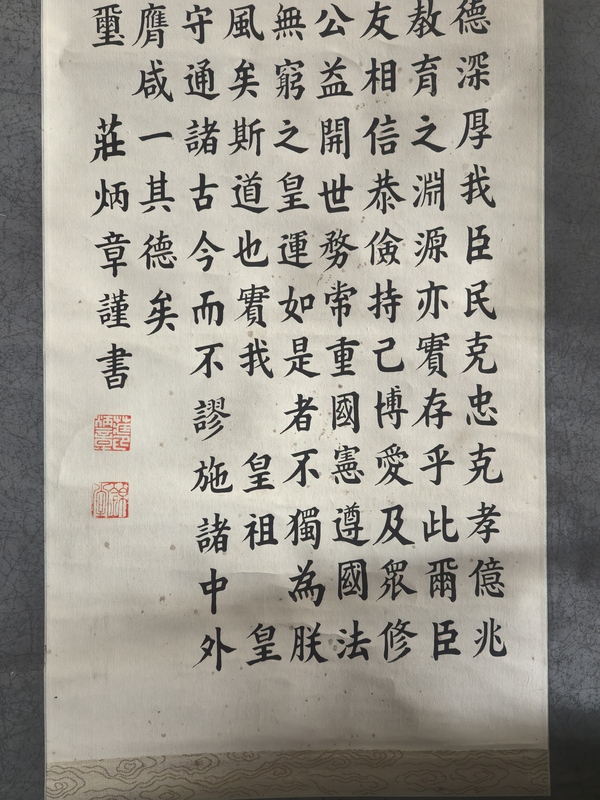 德深厚我臣民克忠克孝億兆
教育之淵源亦實存乎此爾臣
友相信恭儉持己博愛及眾修
公益開世務常重國憲遵國法
無窮之皇運如是者不獨為朕
風矣斯道也實我 皇祖 皇
守通諸古今而不謬施諸中外
膺咸一其德矣
璽 莊炳章謹書